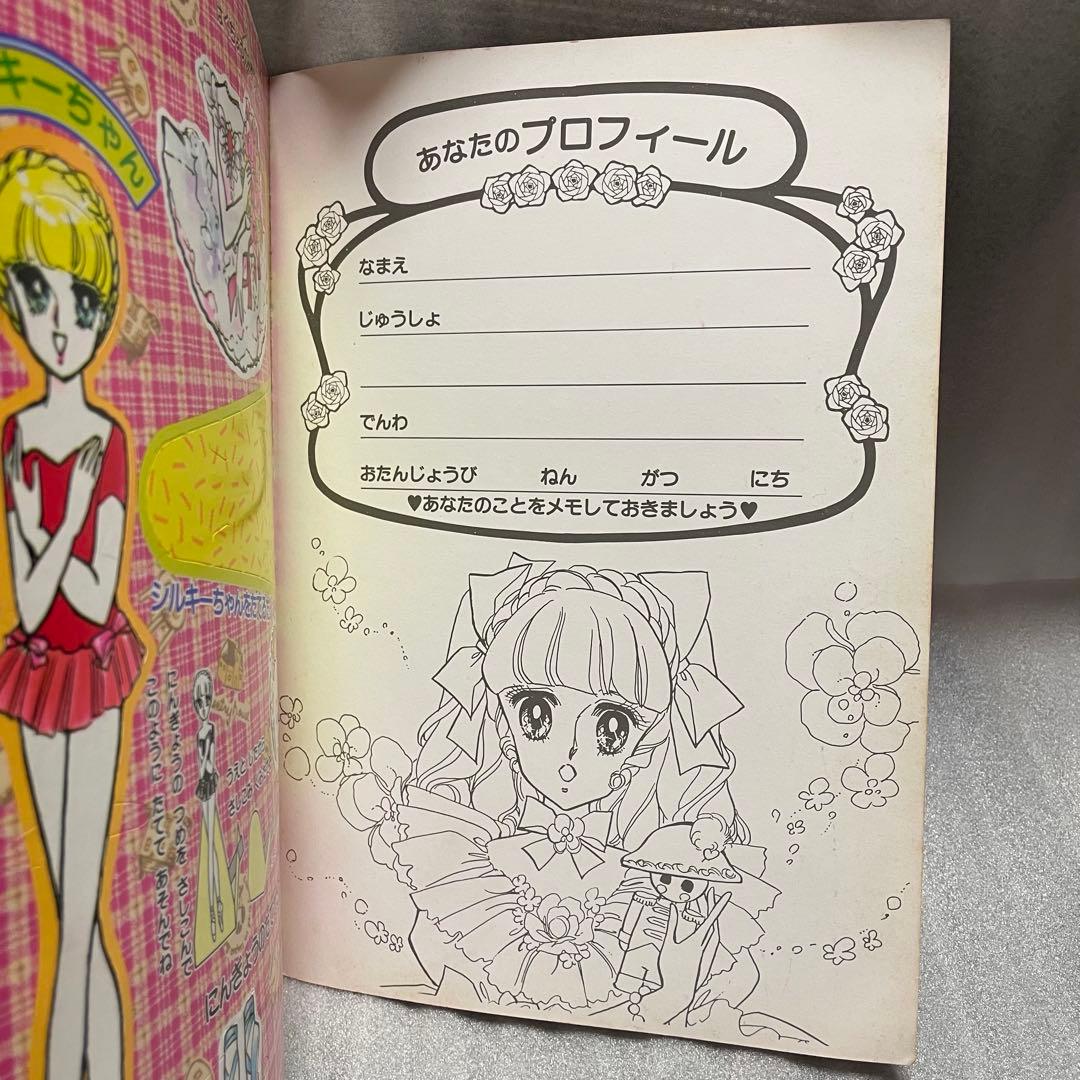 キーちゃん
シルキーちゃんをたてよ
にんぎょうの つめを さしこんで
このように たてて あそんでね
にんぎょうの
あなたのプロフィール
なまえ
じゅうしょ
でんわ
おたんじょうび ねん がつ にち
♥あなたのことをメモしておきましょう♥